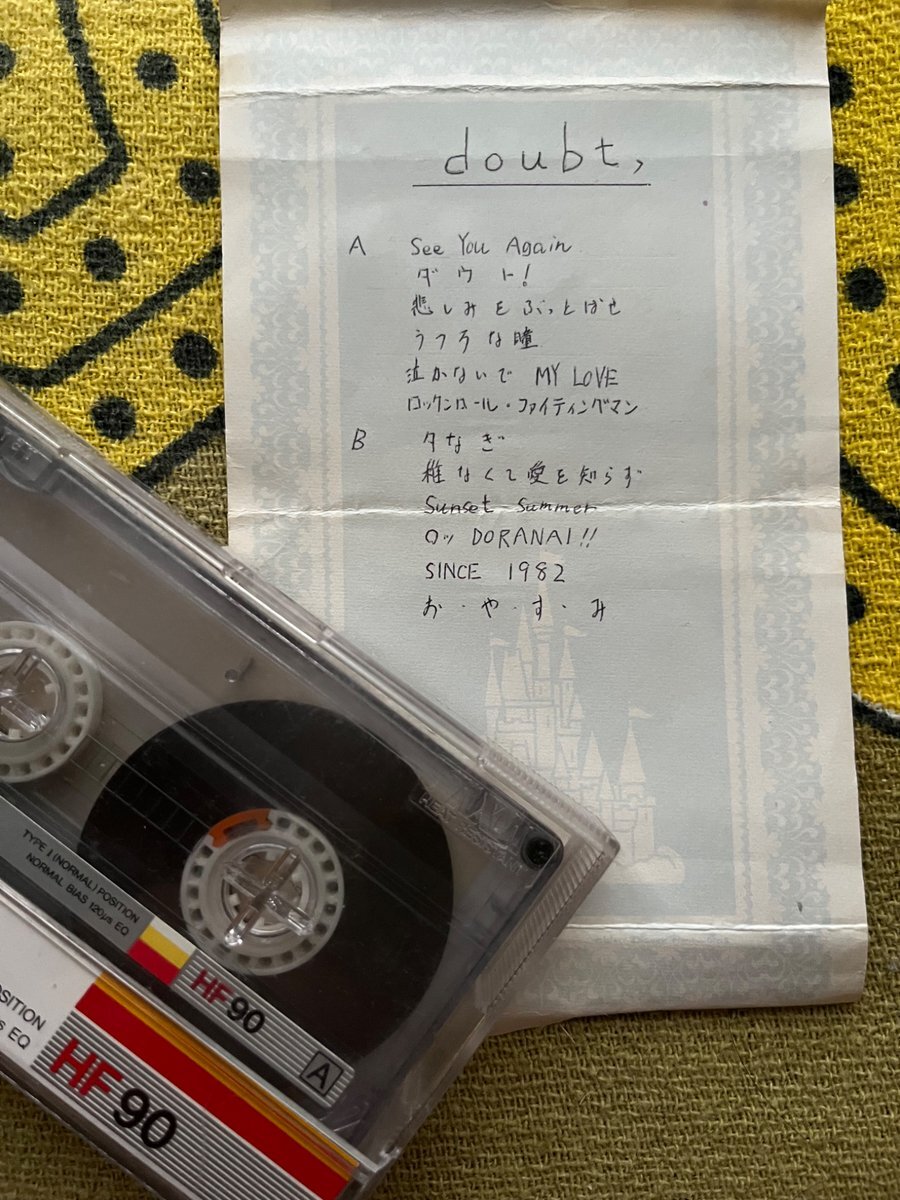 doubt,
A See You Again
ダウト!
悲しみをぶっとばせ
うつろな瞳
泣かないで MY LOVE
ロックンロール・ファイティングマン
B 夕なぎ
稚なくて愛を知らず
Sunset Summer
ロッ DORANAI!!
SINCE 1982
お・や・す・み
TYPE I (NORMAL) POSITION
NORMAL BIAS 120μs EQ
HF 90
A
OSITION
s EQ
HF 90